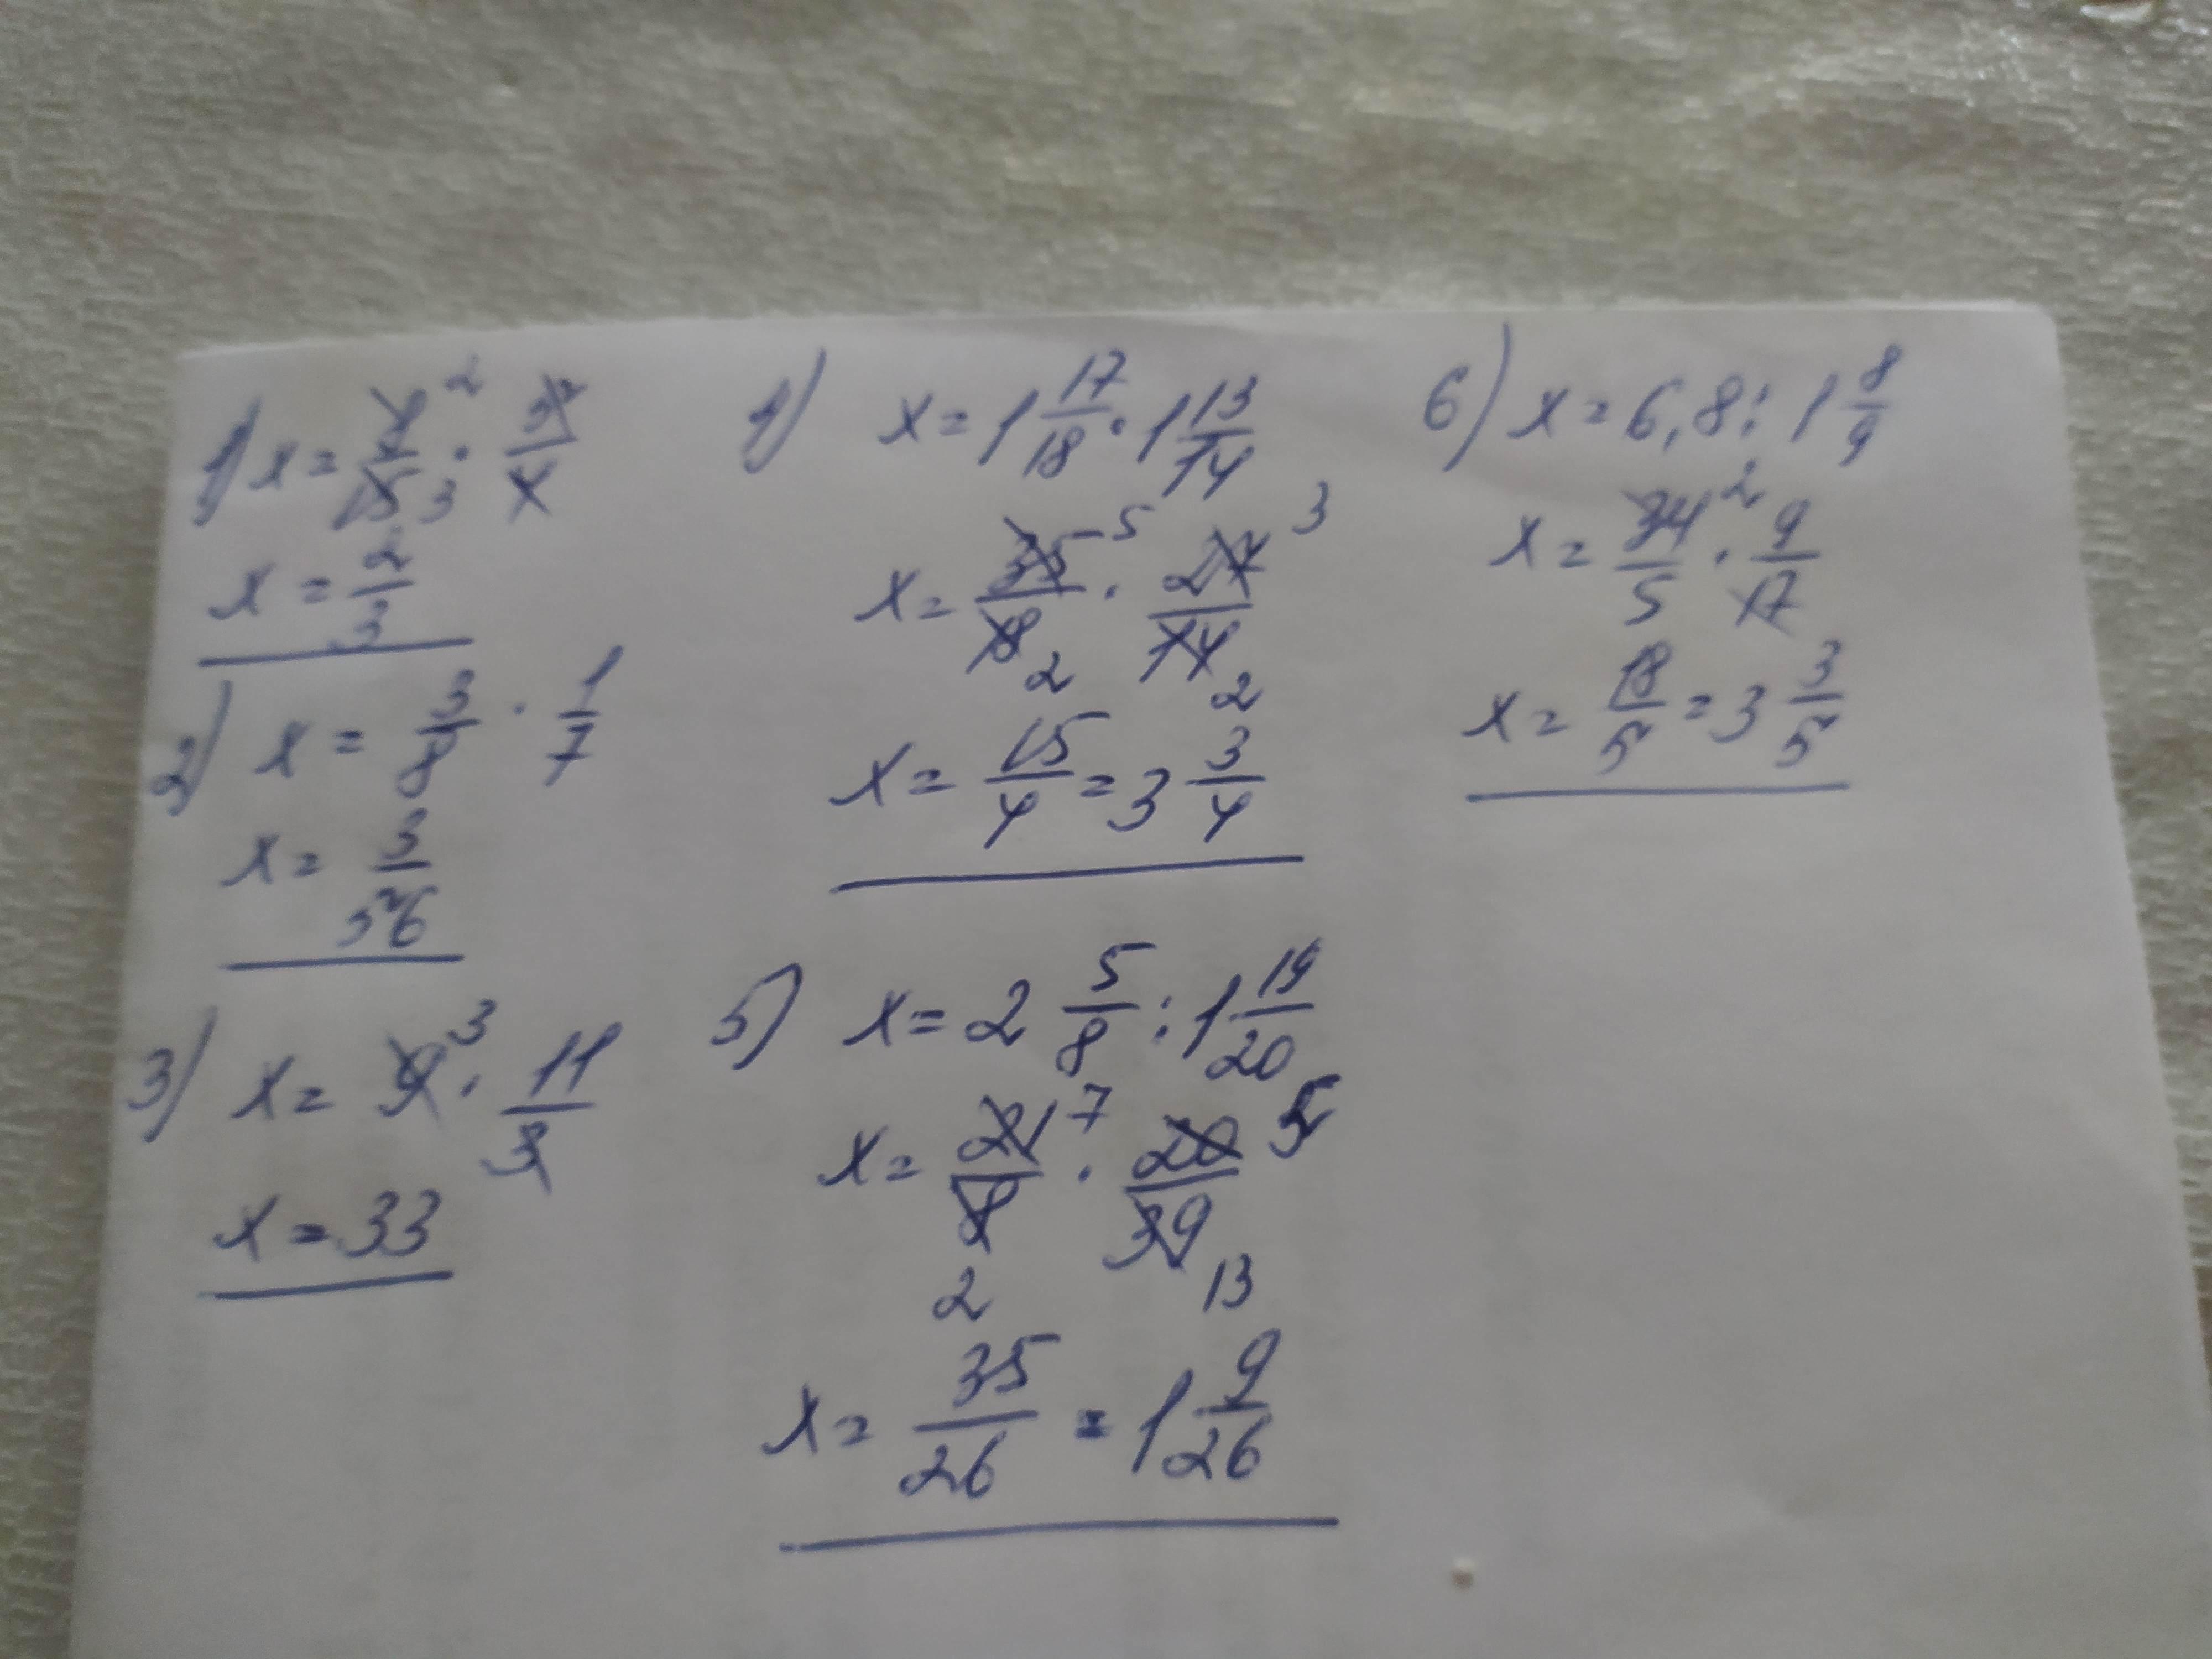 1) x = 8/15 2 3 · 5/4
x = 2/3
2) x = 3/8 · 1/7
x = 3/56
3) x = 9 3 · 11/3
x = 33
4) x = 1 17/18 · 1 13/14
x = 35/18 5 2 · 27/14 3 2
x = 15/4 = 3 3/4
5) x = 2 5/8 : 1 19/20
x = 21/8 7 2 · 20/39 5 13
x = 35/26 = 1 9/26
6) x = 6,8 : 1 8/9
x = 34/5 2 · 9/17
x = 18/5 = 3 3/5